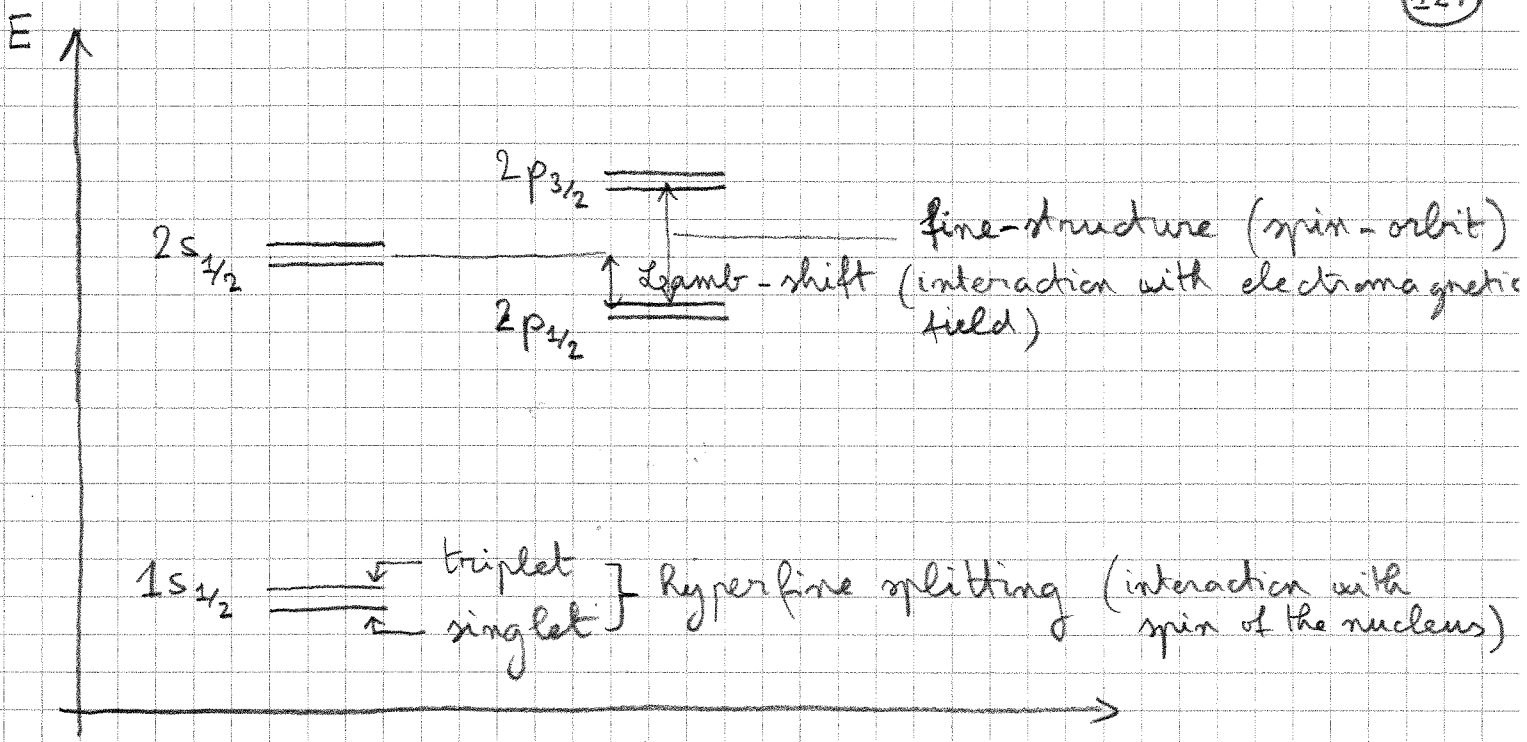 E
2p3/2
fine-structure (spin-orbit)
2s1/2
Lamb-shift (interaction with electromagnetic
field)
2p1/2
triplet
1s1/2
hyperfine splitting (interaction with
singlet
spin of the nucleus)